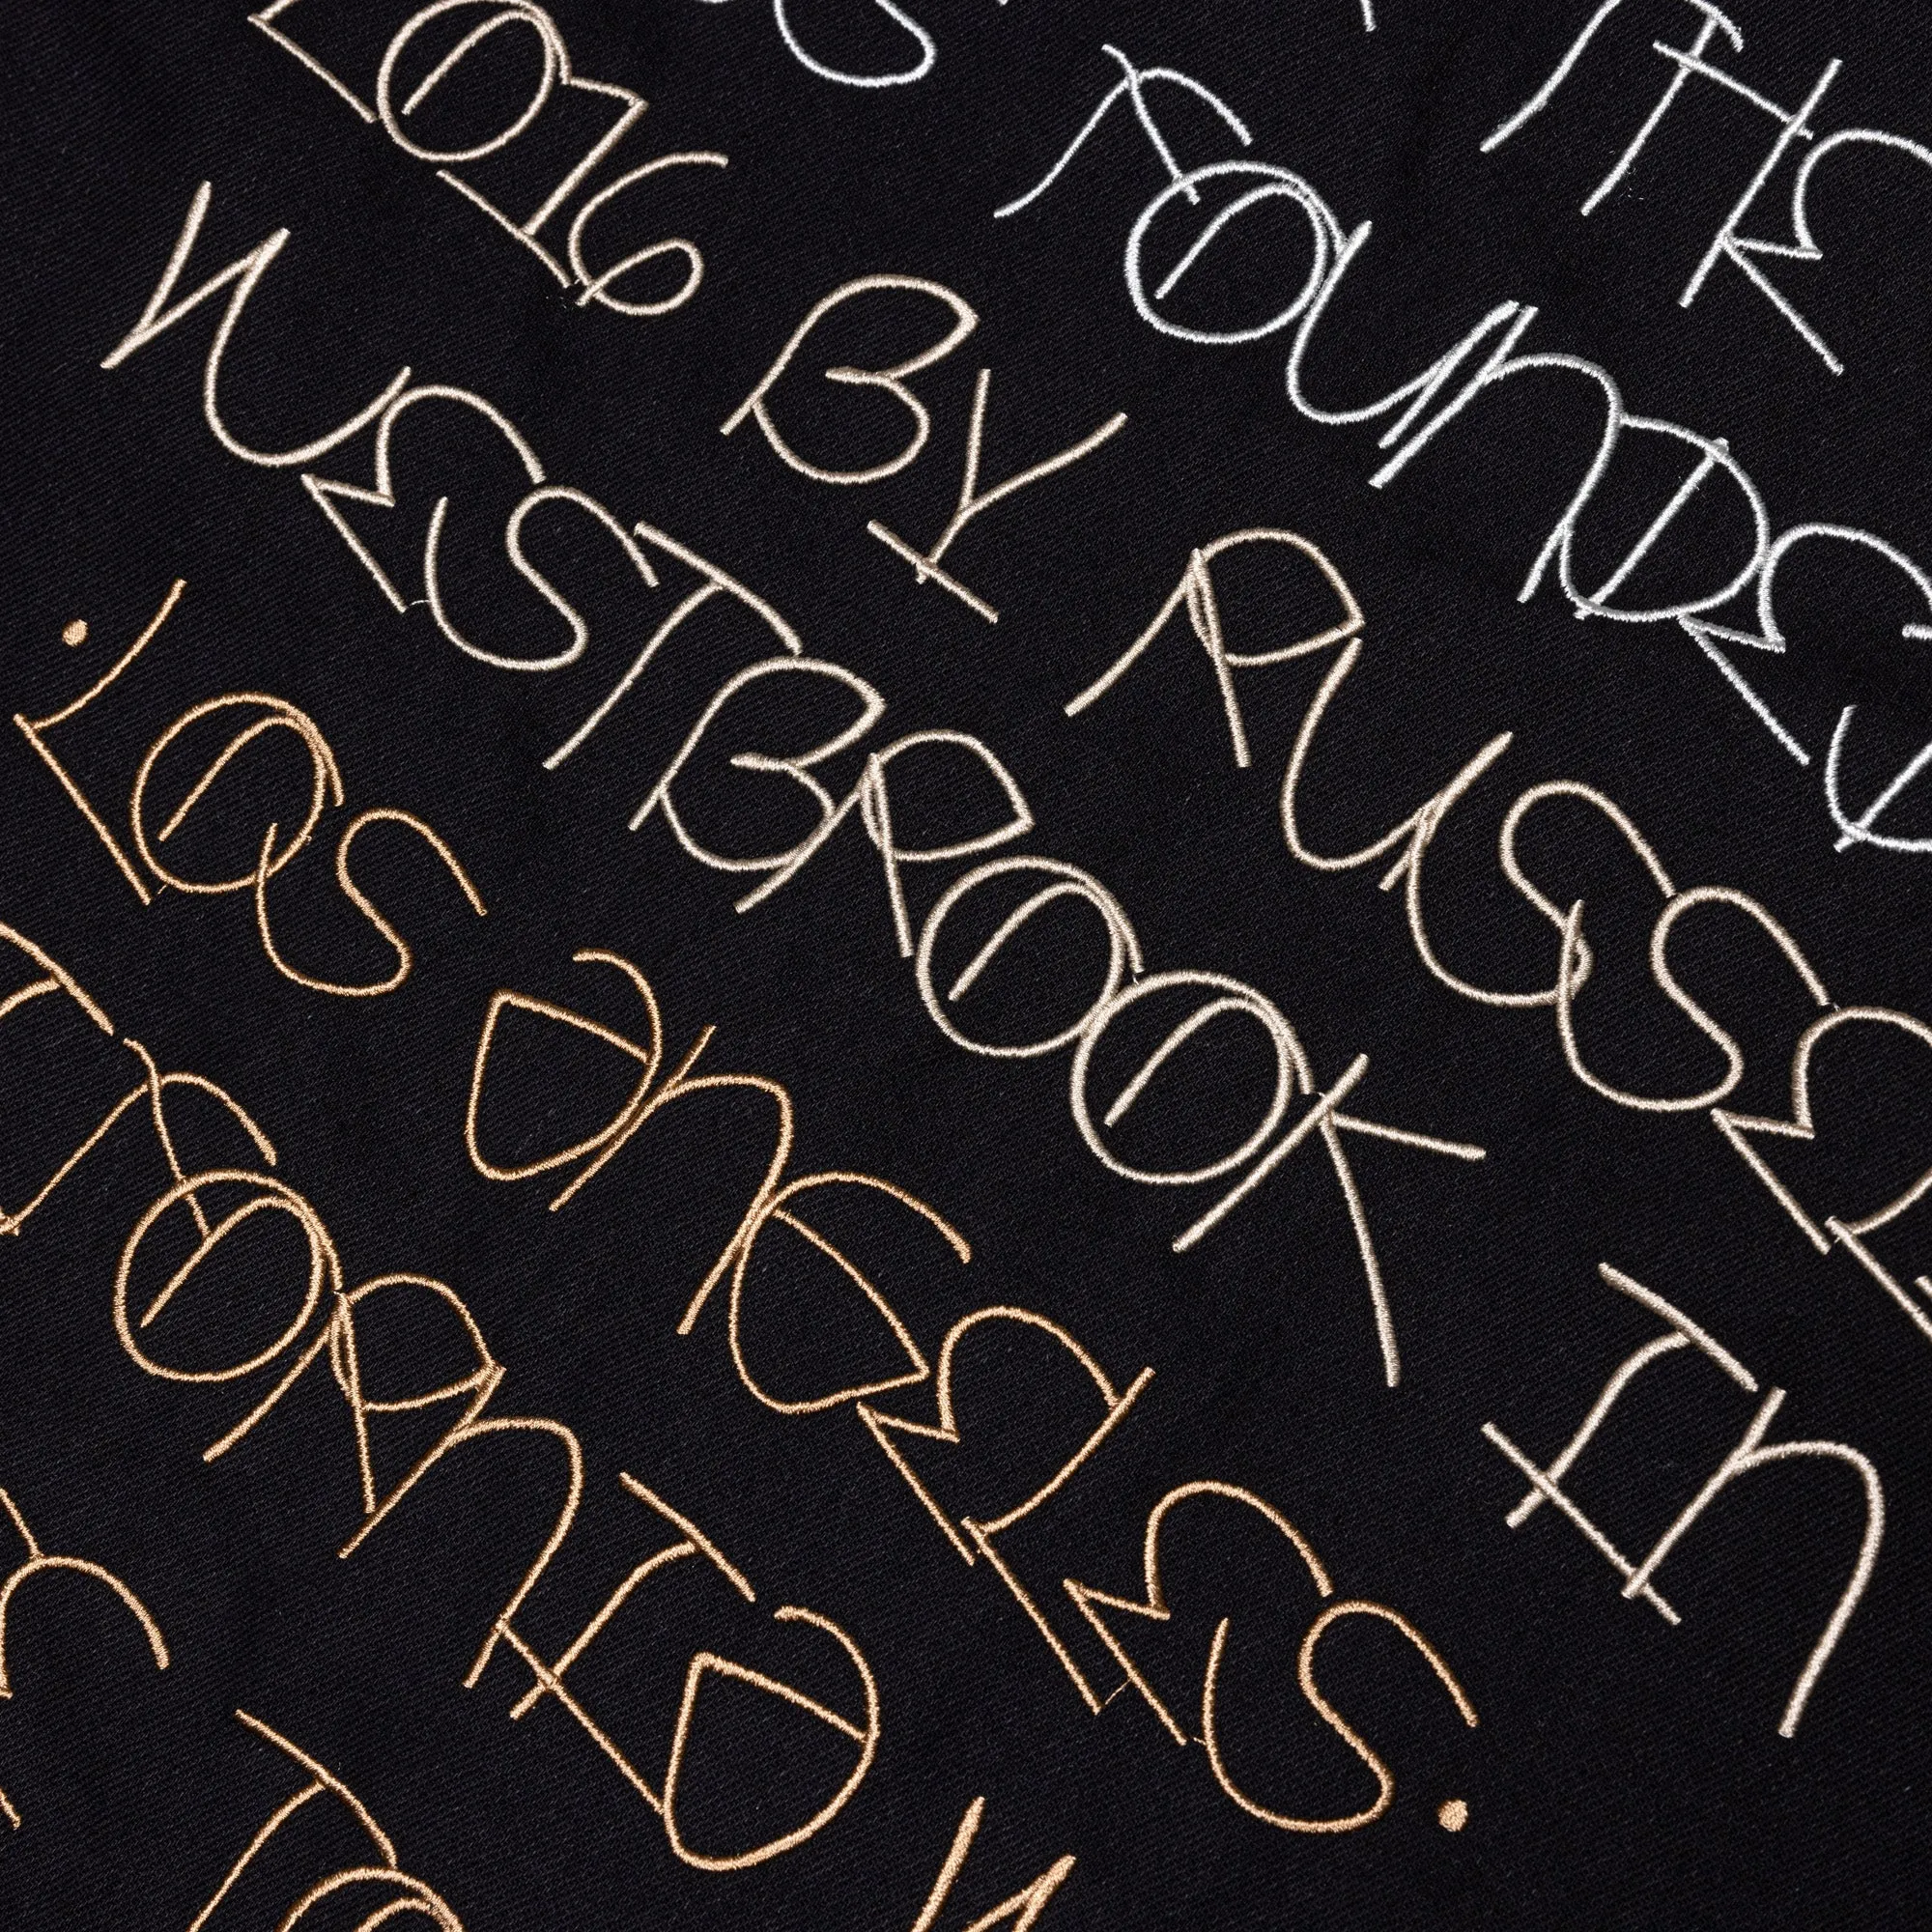 THE
FOUNDED
2016 BY RUSSELL
WESTBROOK IN
.LOS ANGELES.
IFORNIA
TO